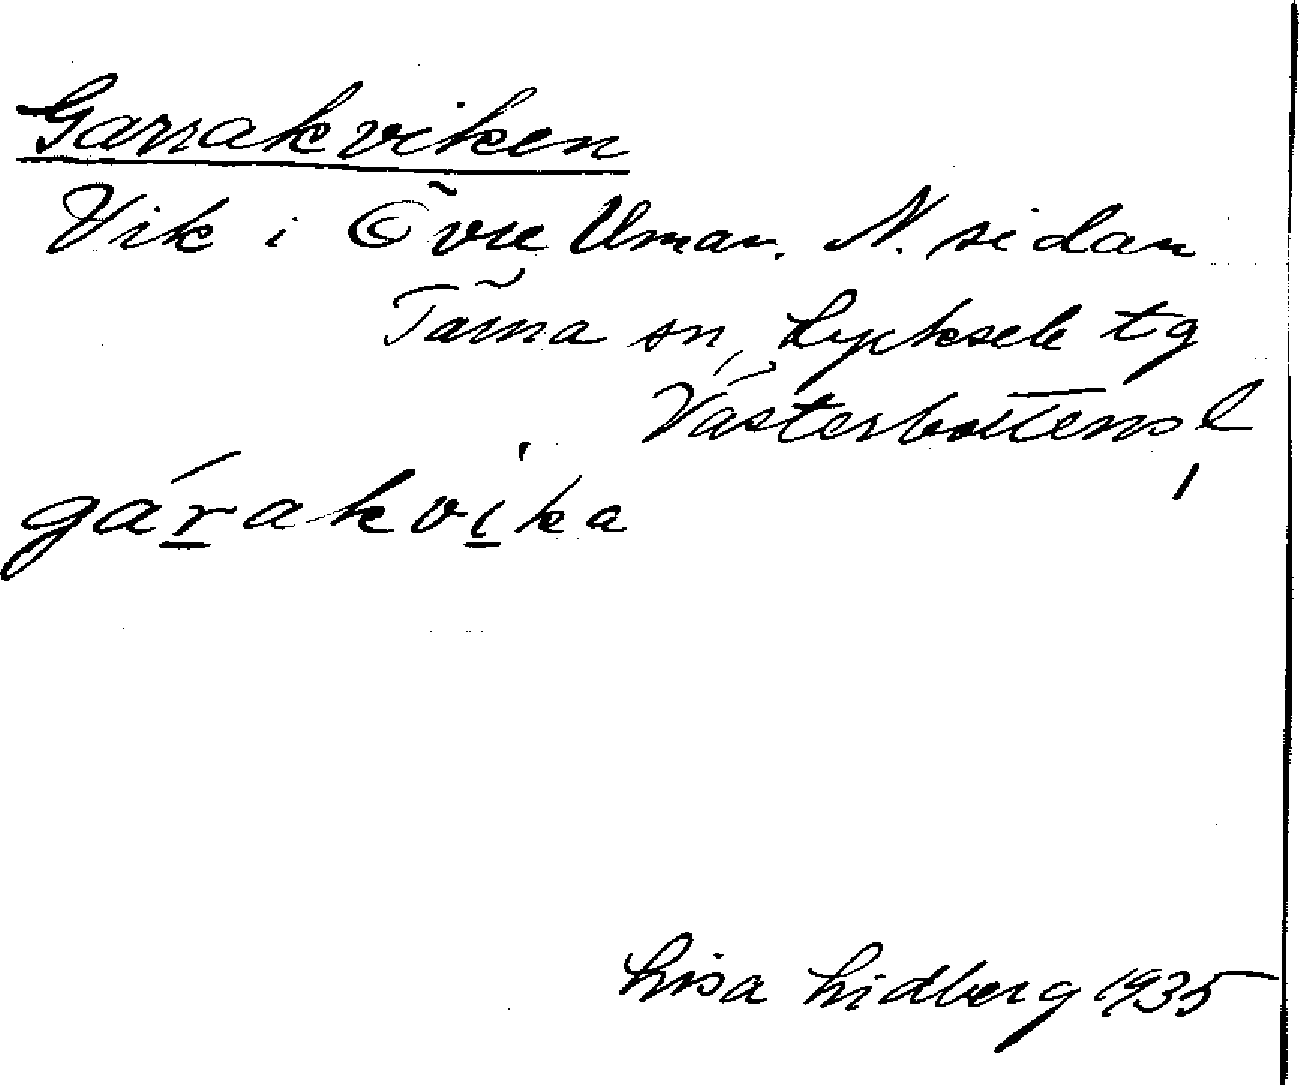 Garrakviken
Vik i Övre Uman. N. sidan
Tärna sn, Lycksele tg
Västerbottens l
gárakvika
Lisa Lidberg 1935